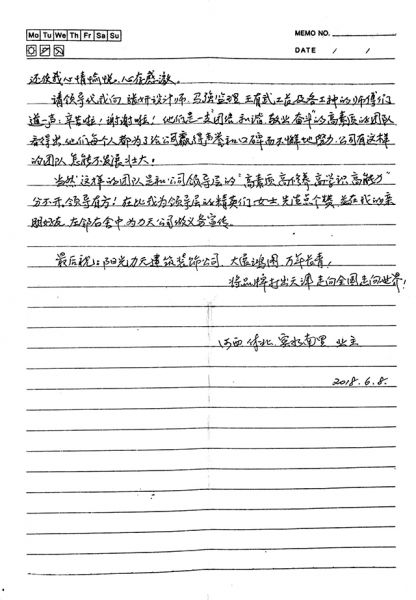 Mo Tu We Th Fr Sa Su
MEMO NO.
DATE / /
还使我心情愉悦。心存感激。
请领导代我向 设计师 监理 工长及各工种的师傅们
道一声：辛苦啦！谢谢啦！他们是一支团结 和谐 敢出奋斗的高素质的团队
看得出他们每个人都为了给公司赢得声誉和口碑而不懈地努力，公司有这样
的团队 怎能不发展壮大。
当然"这样的团队是和公司领导层的"高素质 高修养 高学识 高能力"
分不开，领导有方！在此我为领导层的精英们、女士 点个赞，并在我的亲
朋好友 左邻右舍中为力天公司做义务宣传。
最后祝：阳光力天建筑装饰公司 大展鸿图 万年长青，
将品牌打出天津 走向全国 走向世界！
河西 体北 南里 业主
2018.6.8.